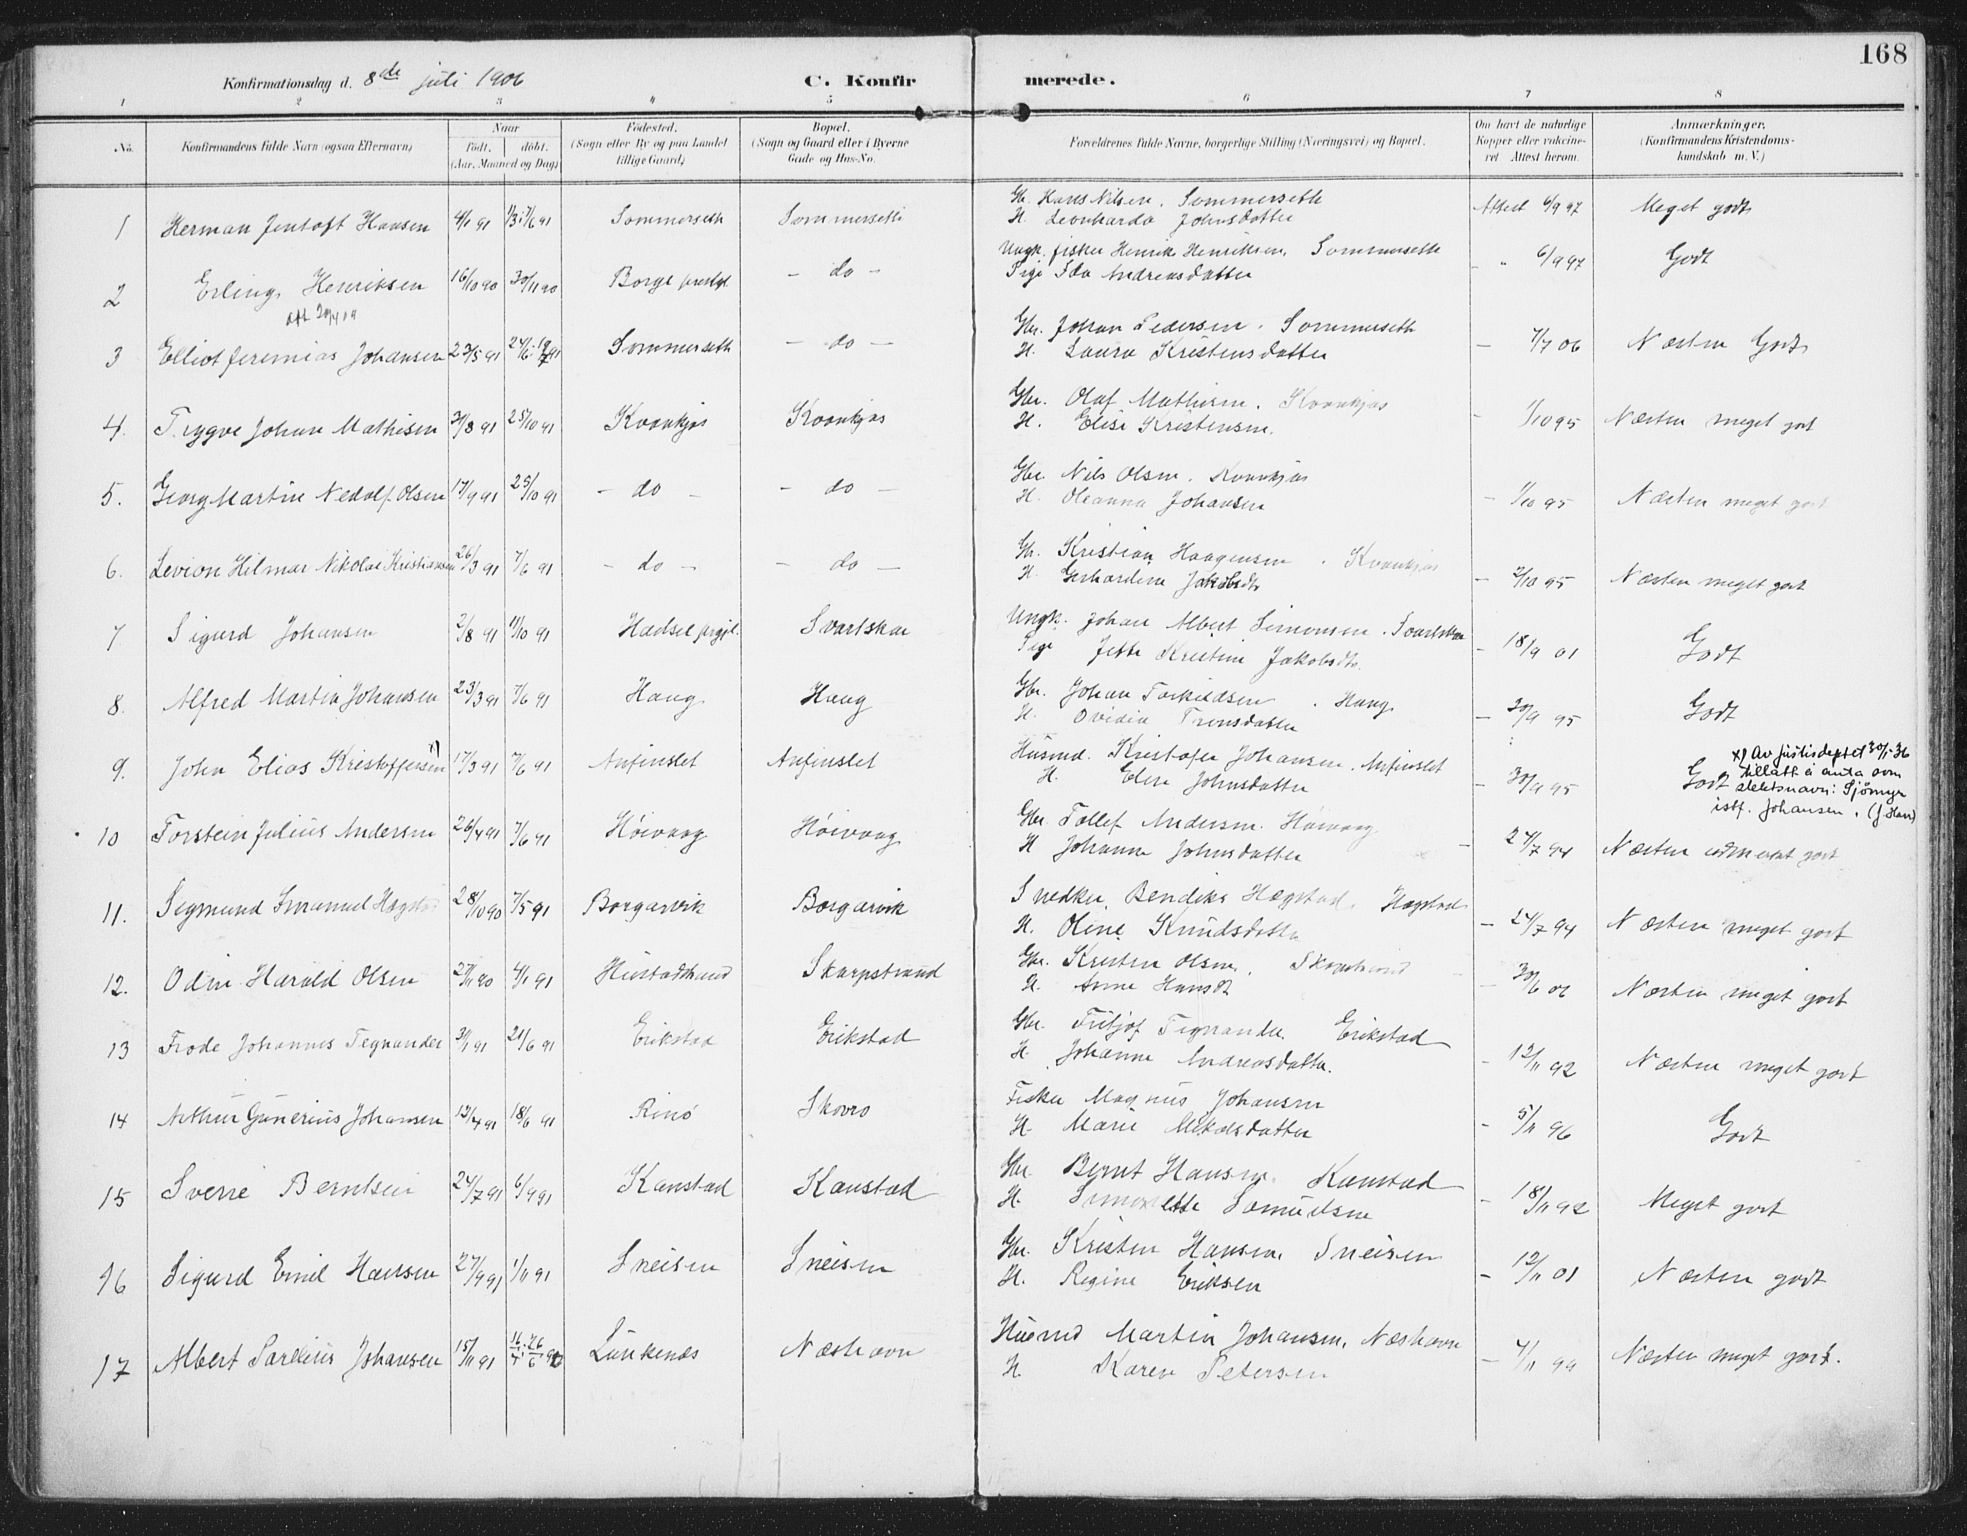 168
Konfirmationsdag d. 8de juli 1906 C. Konfirmerede.
1 2 3 4 5 6 7 8
No. Konfirmandens fulde Navn (ogsaa Efternavn) Naar født. døbt. (Aar, Maaned og Dag) Fødested. (Sogn eller By og paa Landet tillige Gaard) Bopæl. (Sogn og Gaard eller i Byerne Gade og Hus-No. Forældrenes fulde Navne, borgerlige Stilling (Næringsvei) og Bopæl. Om havt de naturlige Kopper eller vakcineret Attest herom. Anmærkninger. (Konfirmandens Kristendomskundskab m. V.)
1 Herman Jentoft Hansen 4/1 91 Sommerseth Sommerseth Gbr. Hans Nilsen. Sommerseth Attest 6/9 97 Meget godt
H. Leonharda Johnsdatter
2 Erling Henriksen 16/10 90 30/11 90 Borge prestgj. - do - Ungk. fisker Henrik Henriksen. Sommerseth - " 6/9 97 Godt
Pige Ida Andreasdatter
3 Elliot Jeremias Johansen 23/5 91 Sommerseth - do - Gbr. Johan Pedersen. Sommerseth - 7/7 06 Næsten Godt
H. Laura Kristensdatter
4. Trygve Johan Mathisen 31/8 91 25/10 91 Kvankjos Kvankjos Gbr. Olaf Mathisen. Kvankjos - 1/10 95 Næsten meget godt
H. Elise Kristensen.
5. Georg Martin Nedolf Olsen 17/9 91 25/10 91 - do - - do - Gbr. Nils Olsen. Kvankjos - 1/10 95 Næsten meget godt
H. Oleanna Johansen
6. Levion Hilmar Nikolai Kristiansen 26/3 91 7/6 91 - do - - do - Gbr. Kristian Haagensen. Kvankjos - 2/10 95 Næsten meget godt
H. Gerhardine Jakobsdtr
7 Sigurd Johansen 2/8 91 11/10 91 Hadsel prgjl. Svartskar Ungk. Johan Albert Simonsen. Svartskar - 18/9 01 Godt
Pige Jette Kristine Jakobsdtr.
8. Alfred Martin Johansen 23/3 91 7/6 91 Haug Haug Gbr. Johan Torkildsen. Haug - 30/9 95 Godt
H. Ovidia Tronsdatter
9. John Elias Kristoffersen x) 17/3 91 7/6 91 Anfinslet Anfinslet Husmd. Kristofer Johansen. Anfinslet - 30/9 95 Godt
H. Elen Johnsdatter
x) Av Justisdeptet 30/5-36
tillatt å anta som
slektsnavn: Sjømyr
istf. Johansen. (J. Han)
10 Torstein Julius Andersen 26/4 91 7/6 91 Høivaag Høivaag Gbr. Tollef Andersen. Høivaag - 24/7 94 Næsten udmerket godt
H. Johanne Johnsdatter
11. Sigmund Emanuel Hegstad 28/10 90 7/5 91 Borgarvik Borgarvik Snedker. Bendiks Hegstad. Hegstad - 24/7 94 Næsten meget godt
H. Oline Knudsdatter
12. Odin Harald Olsen 27/11 90 4/1 91 Hustadstrand Skarpstrand Gbr. Kristen Olsen. Skarpstrand - 30/6 06 Næsten meget godt
H. Anne Hansdt
13 Frode Johannes Tegnander 31/1 91 21/6 91 Erikstad Erikstad Gbr. Fritjof Tegnander. Erikstad - 12/11 92 Næsten meget godt
H. Johanne Andreasdatter.
14 Arthur Gunerius Johansen 12/4 91 18/6 91 Rinø Skovro Fisker Magnus Johansen - 5/11 96 Godt
H. Marie Mikalsdatter
15 Sverre Berntsen 24/7 91 6/9 91 Kanstad Kanstad Gbr. Bernt Hansen. Kanstad - 18/11 92 Meget godt
H. Simonette Samuelsen
16 Sigurd Emil Hansen 27/9 91 1/11 91 Sneisen Sneisen Gbr. Kristen Hansen. Sneisen - 12/11 01 Næsten godt
H. Regine Eriksen
17 Albert Parelius Johansen 15/11 91 Lunkenæs Næshavn Husmd Martin Johansen, Næshavn - 4/11 99 Næsten meget godt.
H. Karen Petersen